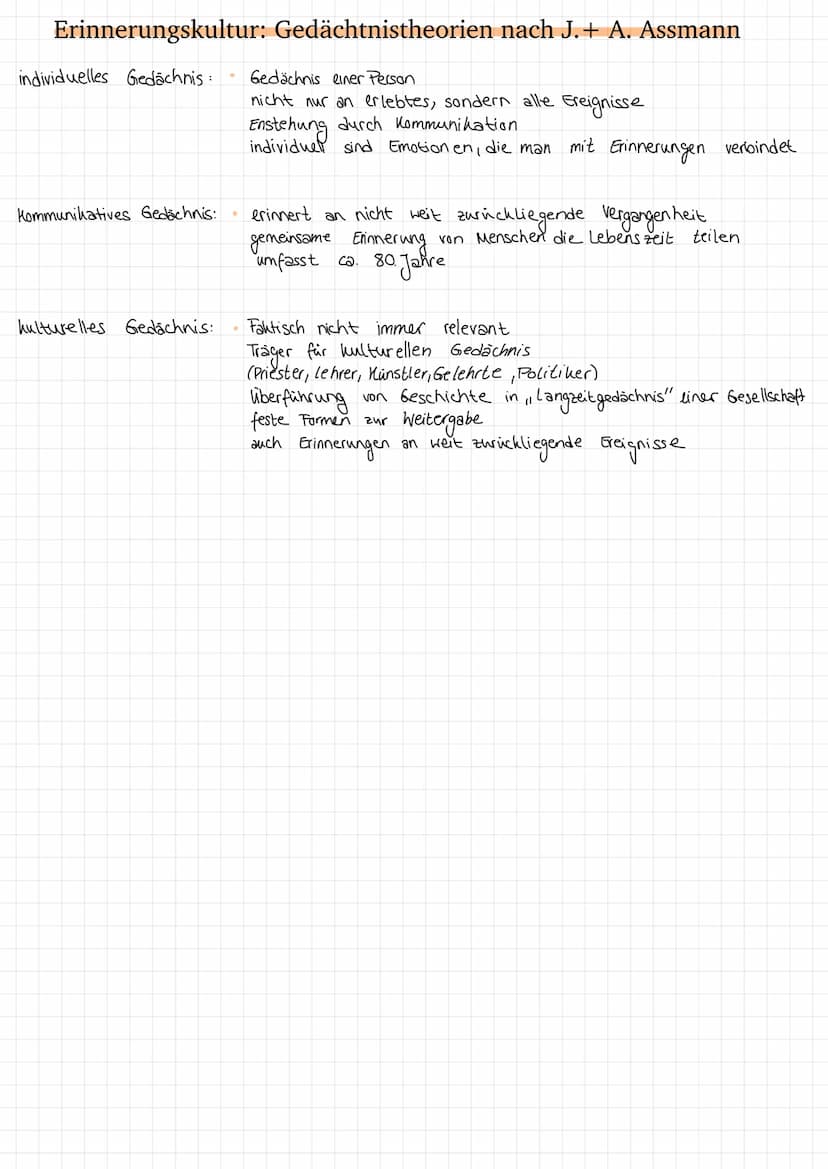 Erinnerungskultur: Gedächtnistheorien nach J.+ A. Assmann
individuelles Gedächnis: • Gedächnis einer Person
nicht nur an erlebtes, sondern alle Ereignisse
Enstehung durch Kommunikation
individuell sind Emotionen, die man mit Erinnerungen verbindet
Kommunikatives Gedächnis: • erinnert an nicht weit zurückliegende Vergangenheit
gemeinsame Erinnerung von Menschen die Lebenszeit teilen
umfasst ca. 80 Jahre
kulturelles Gedächnis: • Faktisch nicht immer relevant
Träger für kulturellen Gedächnis
(Priester, Lehrer, Künstler, Gelehrte, Politiker)
Überführung von Geschichte in „Langzeitgedächnis" einer Gesellschaft
feste Formen zur Weitergabe
auch Erinnerungen an weit zurückliegende Ereignisse